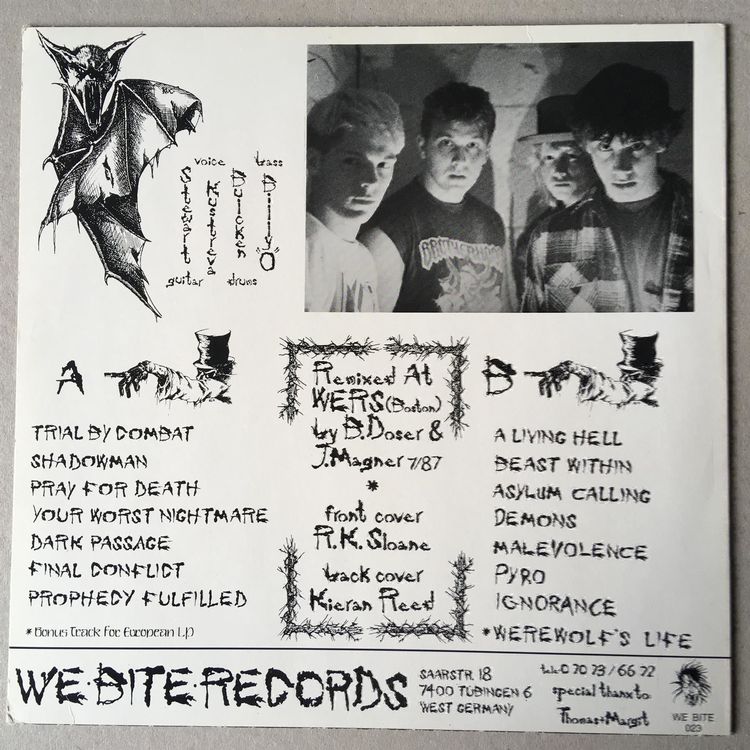 voice
bass
Stewart
Kustreva
Bulchen
Billy "O"
guitar
drums
BROTHERHOOD
A
TRIAL BY COMBAT
SHADOWMAN
PRAY FOR DEATH
YOUR WORST NIGHTMARE
DARK PASSAGE
FINAL CONFLICT
PROPHECY FULFILLED
* Bonus Track for European LP
Remixed At
WERS (Boston)
by B.Doser &
J.Magner 7/87
*
front cover
R.K.Sloane
back cover
Kieran Reed
B
A LIVING HELL
BEAST WITHIN
ASYLUM CALLING
DEMONS
MALEVOLENCE
PYRO
IGNORANCE
*WEREWOLF'S LIFE
WE BITE RECORDS
SAARSTR. 18
7400 TÜBINGEN 6
WEST GERMANY
tel: 0 70 73 / 66 72
special thanx to:
Thomas + Margit
WE BITE
023